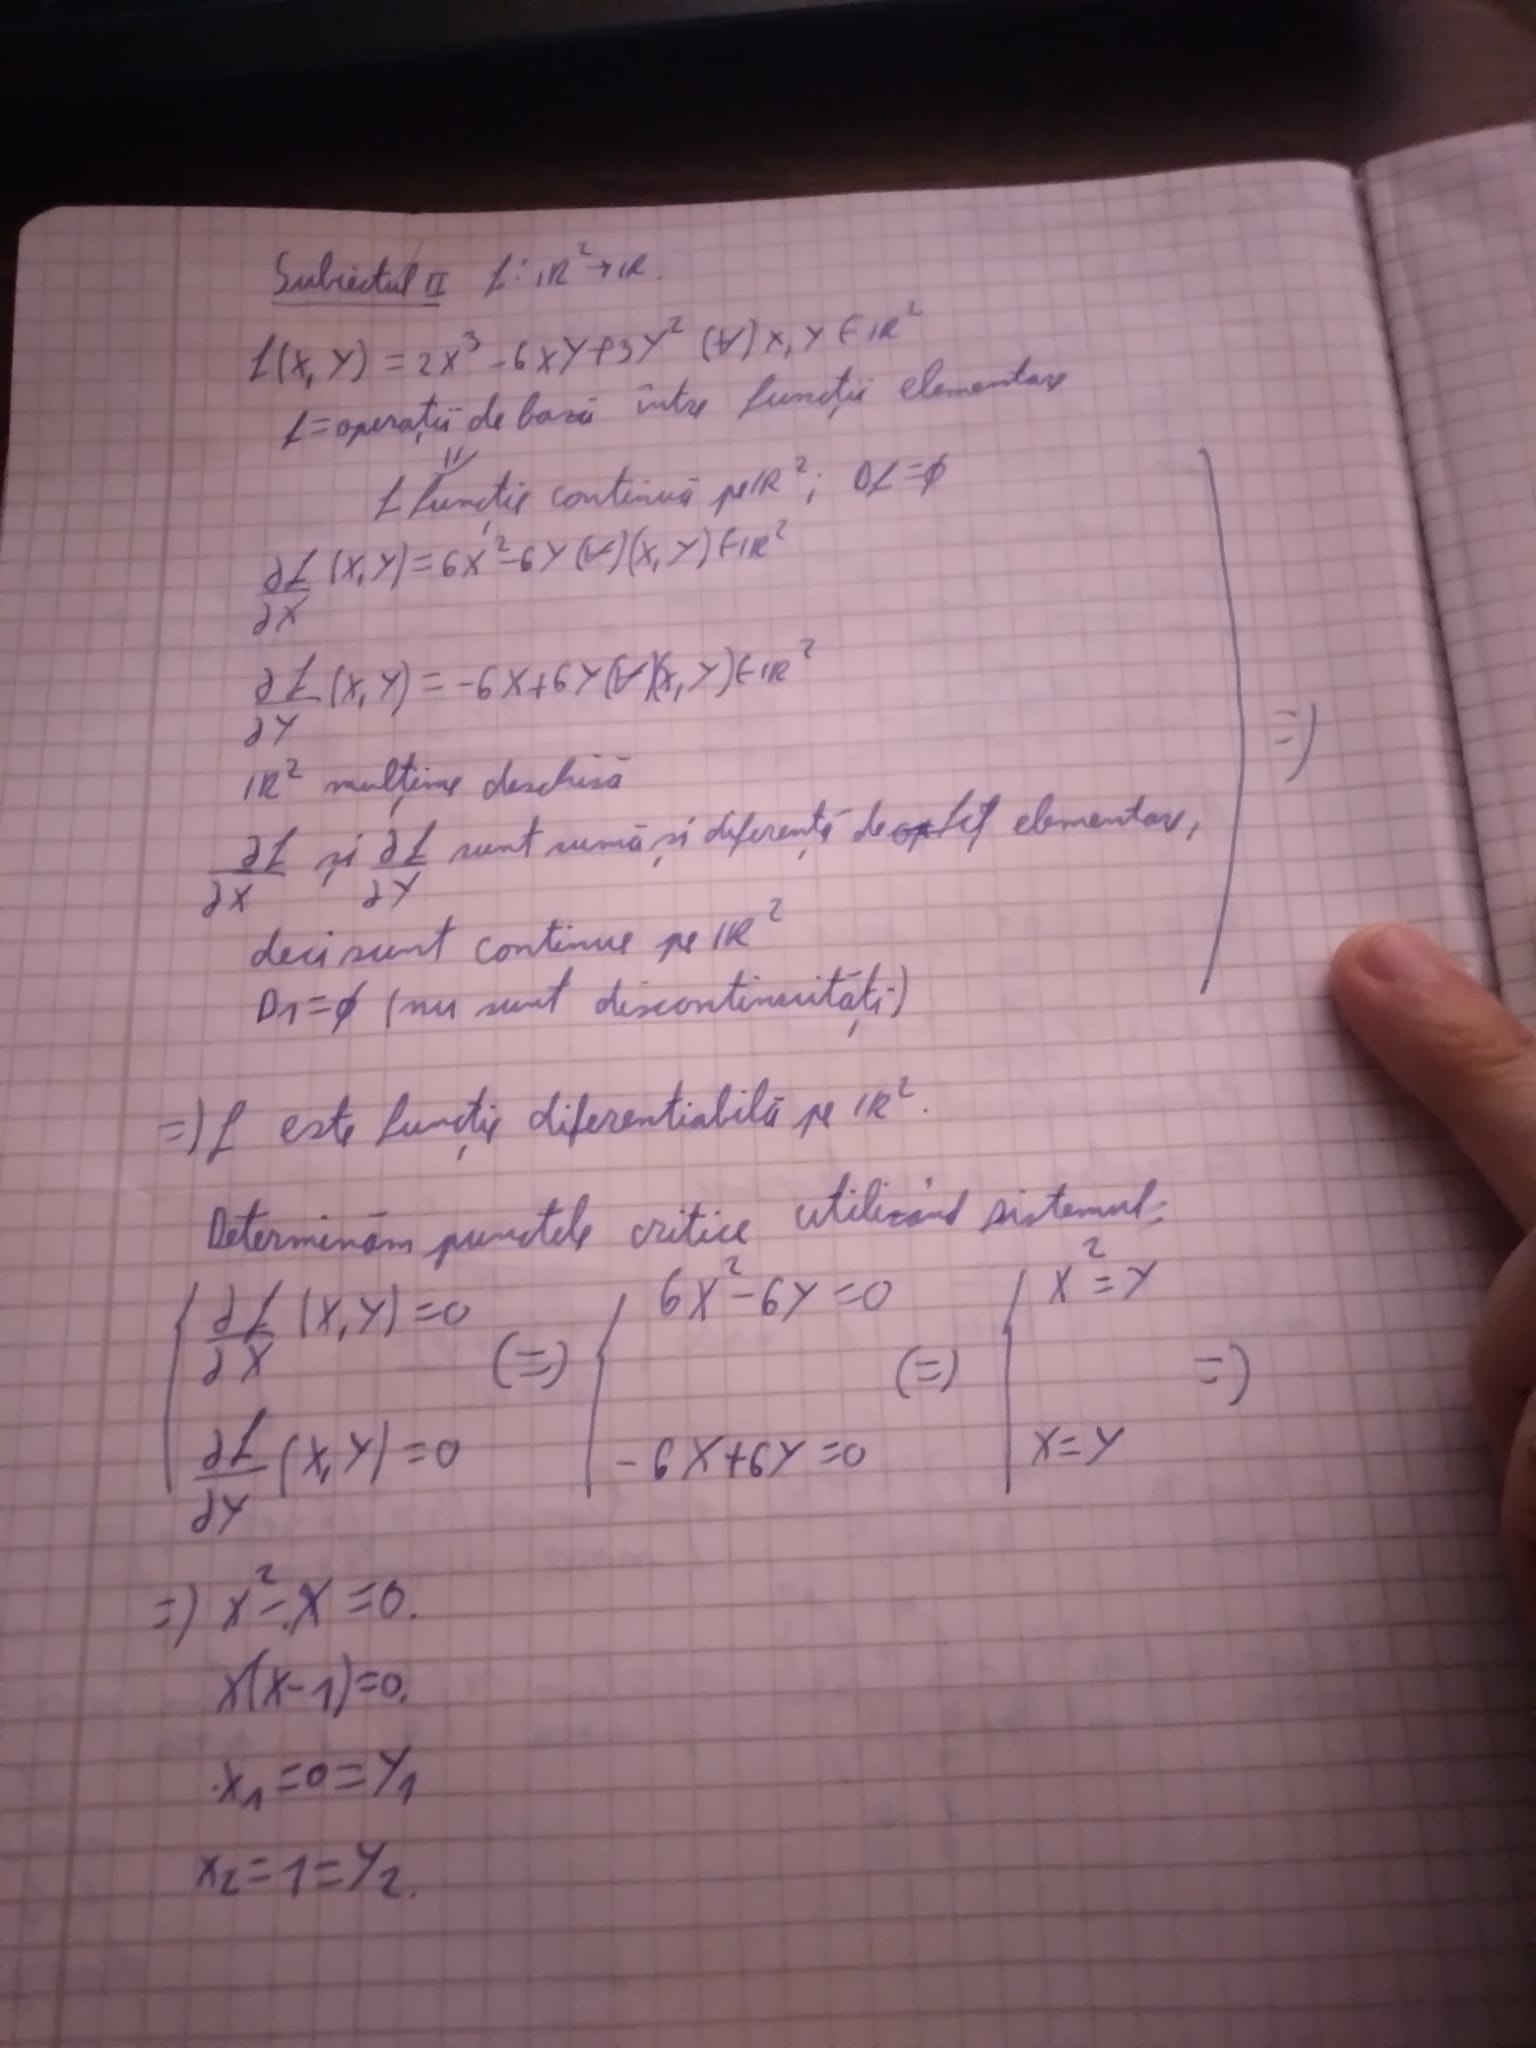 Subiectul II f: ℝ²→ℝ.
f(x, y) = 2x³ - 6xy + 3y² (∀) x, y ∈ ℝ²
f = operații de bază între funcții elementare
⇓
f funcție continuă pe ℝ²; Df = ∅
∂f/∂x (x, y) = 6x² - 6y (∀)(x, y) ∈ ℝ²
∂f/∂y (x, y) = -6x + 6y (∀)(x, y) ∈ ℝ²
=)
ℝ² mulțime deschisă
∂f/∂x și ∂f/∂y sunt sumă și diferență de fcț elementare,
deci sunt continue pe ℝ²
D1 = ∅ (nu sunt discontinuități)
=) f este funcție diferentiabilă pe ℝ².
Determinăm punctele critice utilizând sistemul:
{ ∂f/∂x (x, y) = 0 (=) { 6x² - 6y = 0 (=) { x² = y =)
∂f/∂y (x, y) = 0 -6x + 6y = 0 x = y
=) x² - x = 0.
x(x-1) = 0.
x₁ = 0 = y₁
x₂ = 1 = y₂.